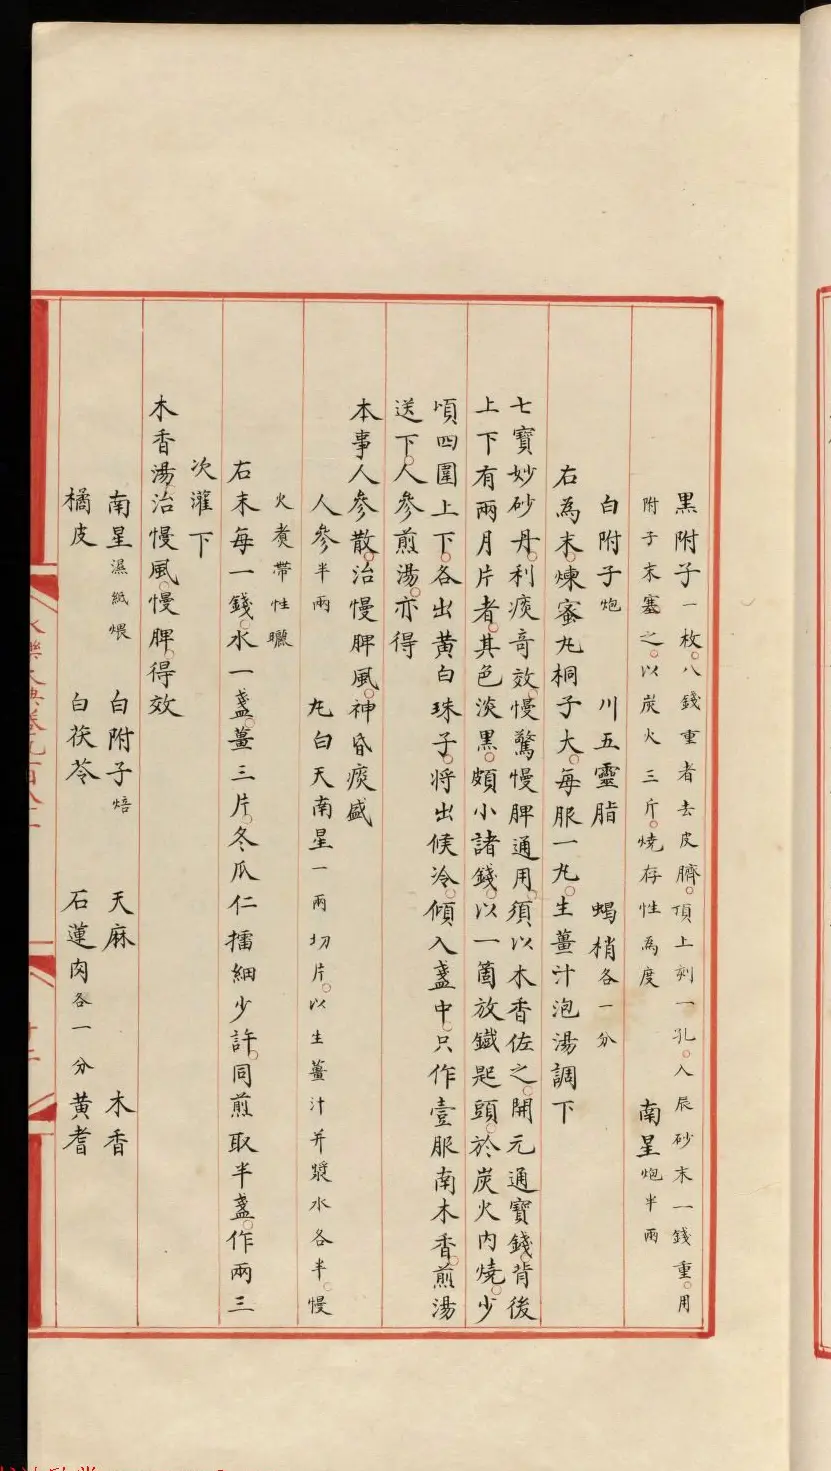 黑附子一枚。八錢重者去皮臍。頂上刻一孔。入辰砂末一錢重。用
附子末塞之。以炭火三斤。燒存性為度 南星炮半兩
白附子炮 川五靈脂 蝎梢各一分
右為末。煉蜜丸桐子大。每服一丸。生薑汁泡湯調下
七寶妙砂丹。利痰奇效。慢驚慢脾通用。須以木香佐之。開元通寶錢。背後
上下有兩月片者。其色淡黑。頗小諸錢。以一箇放鐵匙頭。於炭火內燒。少
頃四圍上下。各出黃白珠子。將出候冷。傾入盞中。只作壹服南木香。煎湯
送下。人參煎湯。亦得
本事人參散。治慢脾風。神昏痰盛
人參半兩 圥白天南星一兩切片。以生薑汁并漿水各半。慢
火煮帶性曬
右末每一錢。水一盞。薑三片。冬瓜仁擂細少許。同煎取半盞。作兩三
次灌下
木香湯。治慢風。慢脾。得效
南星濕紙煨 白附子焙 天麻 木香
橘皮 白茯苓 石蓮肉各一分 黃耆